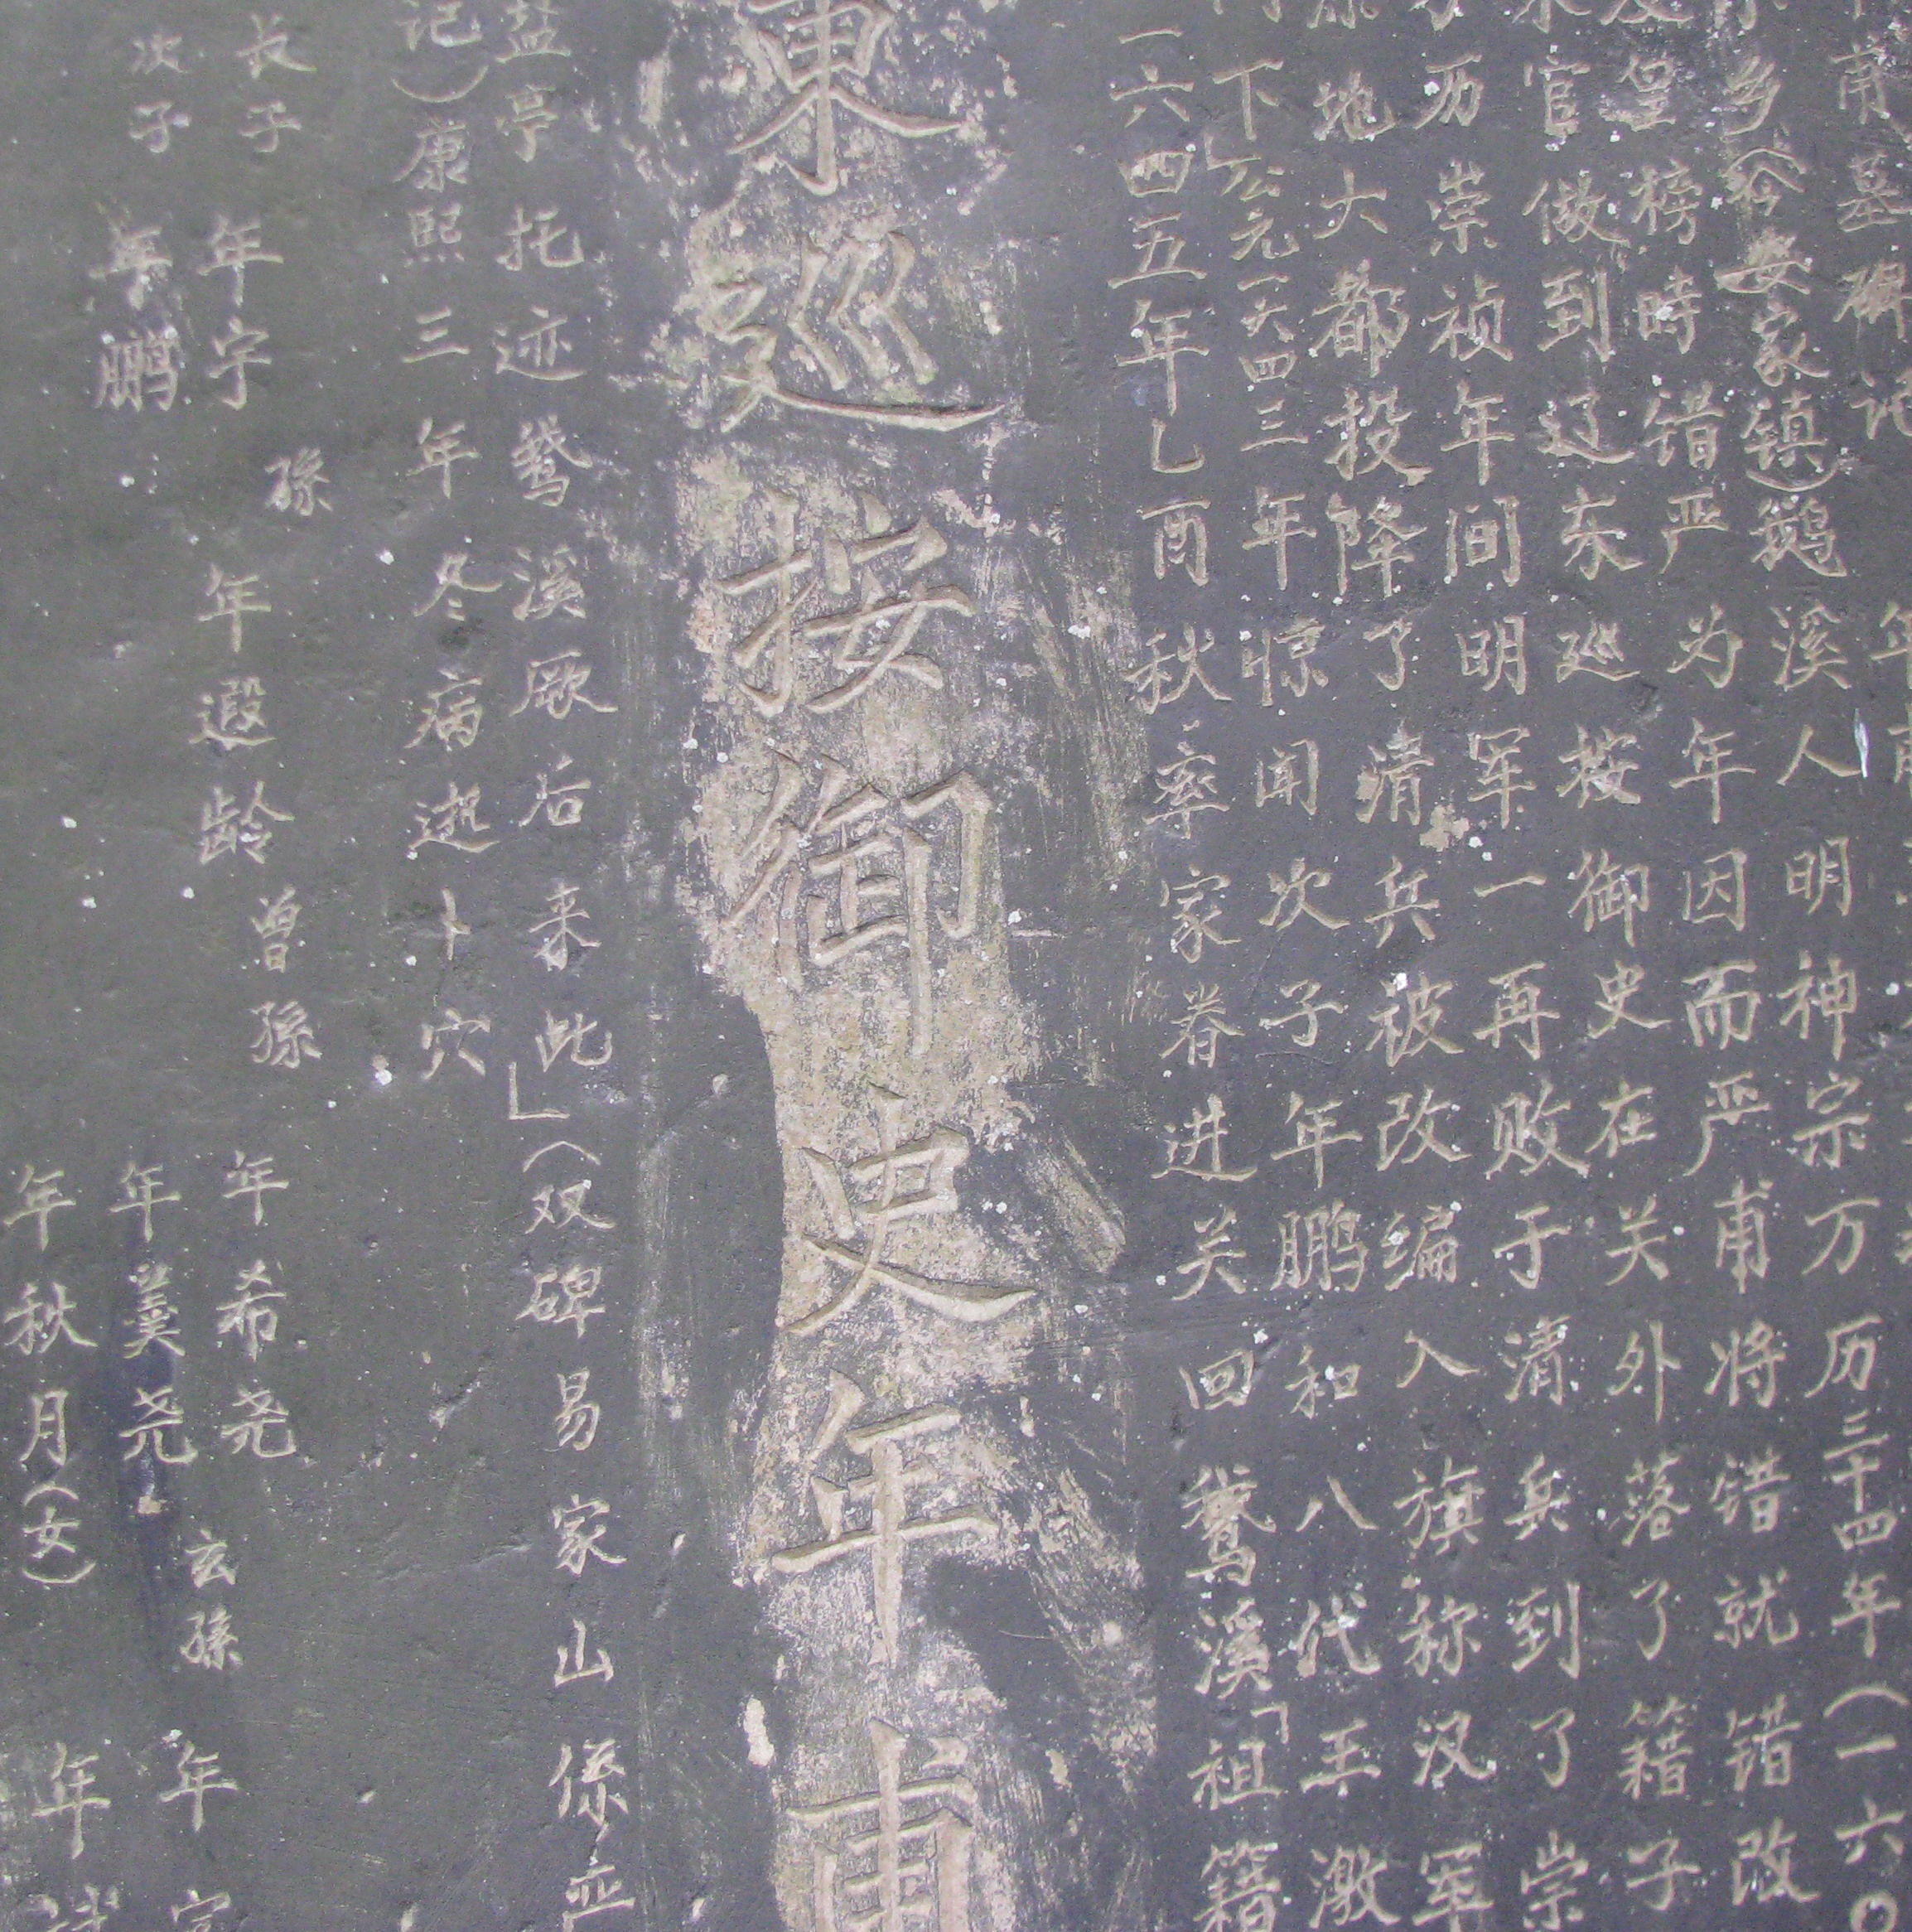 年甫
甫墓碑记
乡(今安家镇)鹅溪人明神宗万历三十四年(一六〇
皇榜時错严为年因而严甫将错就错改
官做到辽东巡按御史在关外落了籍子
历崇祯年间明军一再败于清兵到了崇
地大都投降了清兵被改编入旗称汉军
下(公元一六四三年惊闻次子年鹏和八代王激
一六四五年乚酉秋率家眷进关回鵞溪「祖籍
東巡按御史年甫
盐亭托迹鵞溪厥后来此」(双碑易家山係严
记)康熙三年冬病逝卜穴
长子年宇孫年遐龄曾孫年希尧玄孫年
次子年鹏年羹尧
年秋月(女)年